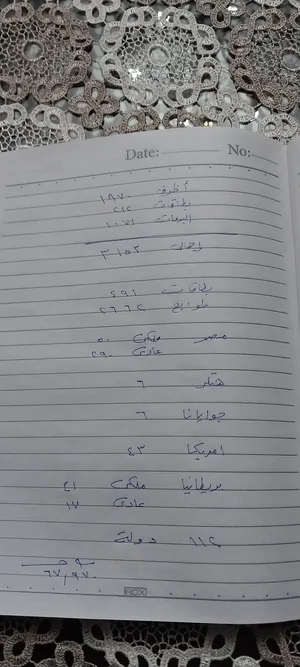 Date: No:
أظرف ١٨٧٠
بطاقات ٢١٢
البرمات ١٠٧١
إجمالى ٣١٥٣
بطاقات ٤٩١
طوابع ٢٦٦٢
مصر ملكى ٥٠
عادى ٢٩٠
هتلر ٦
جوايانا ٦
امريكا ٤٣
بريطانيا ملكى ٤١
عادى ١٧
١١٢ دولة
٦٧,٩٧٠
FOX